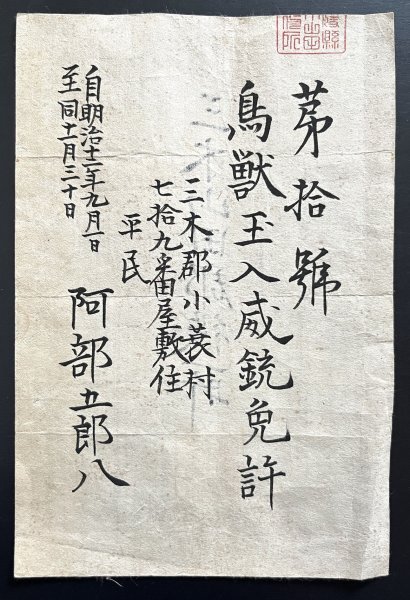 第拾號
鳥獸玉入威銃免許
三木郡小蓑村
七拾九番屋敷住
平民
阿部五郎八
自明治十二年九月一日
至同十一月三十日